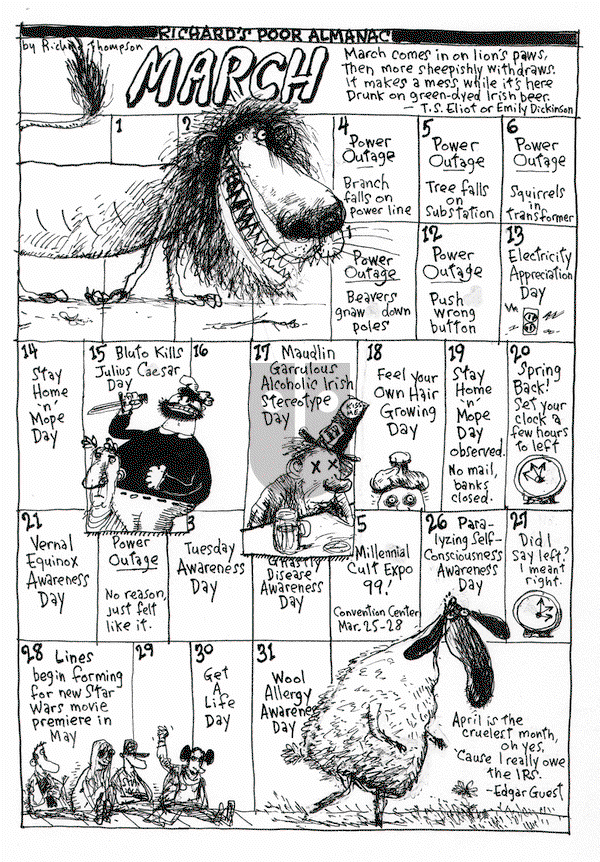 RICHARD'S POOR ALMANAC
by Richard Thompson
MARCH
March comes in on lion's paws,
Then more sheepishly withdraws.
It makes a mess while it's here
Drunk on green-dyed Irish beer.
— T.S. Eliot or Emily Dickinson
1
2
4
Power
Outage
Branch
falls on
Power line
5
Power
Outage
Tree falls
on
Substation
6
Power
Outage
Squirrels
in
transformer
1
Power
Outage
Beavers
gnaw down
poles
12
Power
Outage
Push
wrong
button
13
Electricity
Appreciation
Day
14
Stay
Home
'n'
Mope
Day
15 Bluto Kills
Julius Caesar
Day
16
17 Maudlin
Garrulous
Alcoholic Irish
Stereotype
Day
KISS
ME
18
Feel your
Own Hair
Growing
Day
19
Stay
Home
'n'
Mope
Day
observed.
No mail,
banks
closed.
20
Spring
Back!
Set your
clock a
few hours
to left
21
Vernal
Equinox
Awareness
Day
Power
Outage
No reason,
just felt
like it.
3
Tuesday
Awareness
Day
Ghastly
Disease
Awareness
Day
5
Millennial
Cult Expo
99!
Convention Center
Mar. 25-28
26 Para-
lyzing Self-
Consciousness
Awareness
Day
27
Did I
Say left?
I meant
right.
28 Lines
begin forming
for new Star
Wars movie
premiere in
May
29
30
Get
A
Life
Day
31
Wool
Allergy
Awareness
Day
April is the
cruelest month,
oh yes,
'Cause I really owe
the IRS.
-Edgar Guest